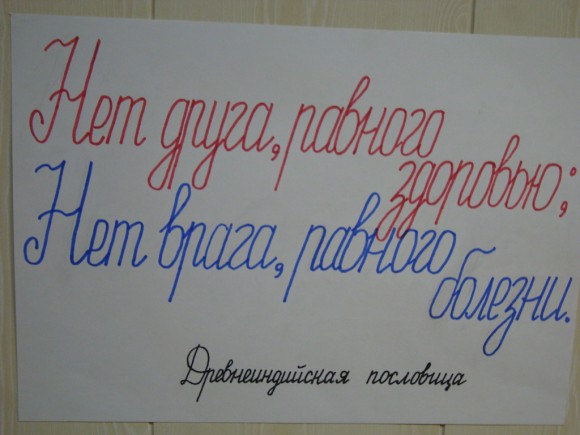 Нет друга, равного
здоровью;
Нет врага, равного
болезни.
Древнеиндийская пословица